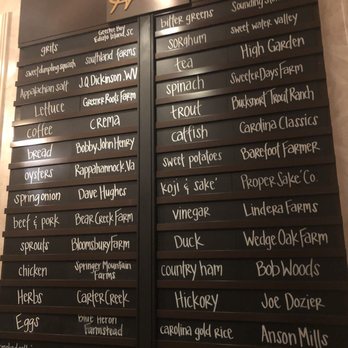 Geechie Boy
grits Edisto Island, SC
sweet dumpling squash southland farms
Appalachian salt J.Q. Dickinson, WV
Lettuce Greener Roots Farm
coffee CREMA
bread Bobby John Henry
oysters Rappahannock, Va
spring onion Dave Hughes
beef & pork Bear Creek Farm
sprouts Bloomsbury Farm
chicken Springer Mountain
Farms
Herbs Carter Creek
Eggs Blue Heron
Farmstead
bitter greens Sounding
sorghum sweet water valley
tea High Garden
spinach Sweeter Days Farm
trout Bucksnort Trout Ranch
catfish Carolina Classics
sweet potatoes Barefoot Farmer
koji & sake' Proper Sake' Co.
vinegar Lindera Farms
Duck Wedge Oak Farm
country ham Bob Woods
Hickory Joe Dozier
carolina gold rice Anson Mills